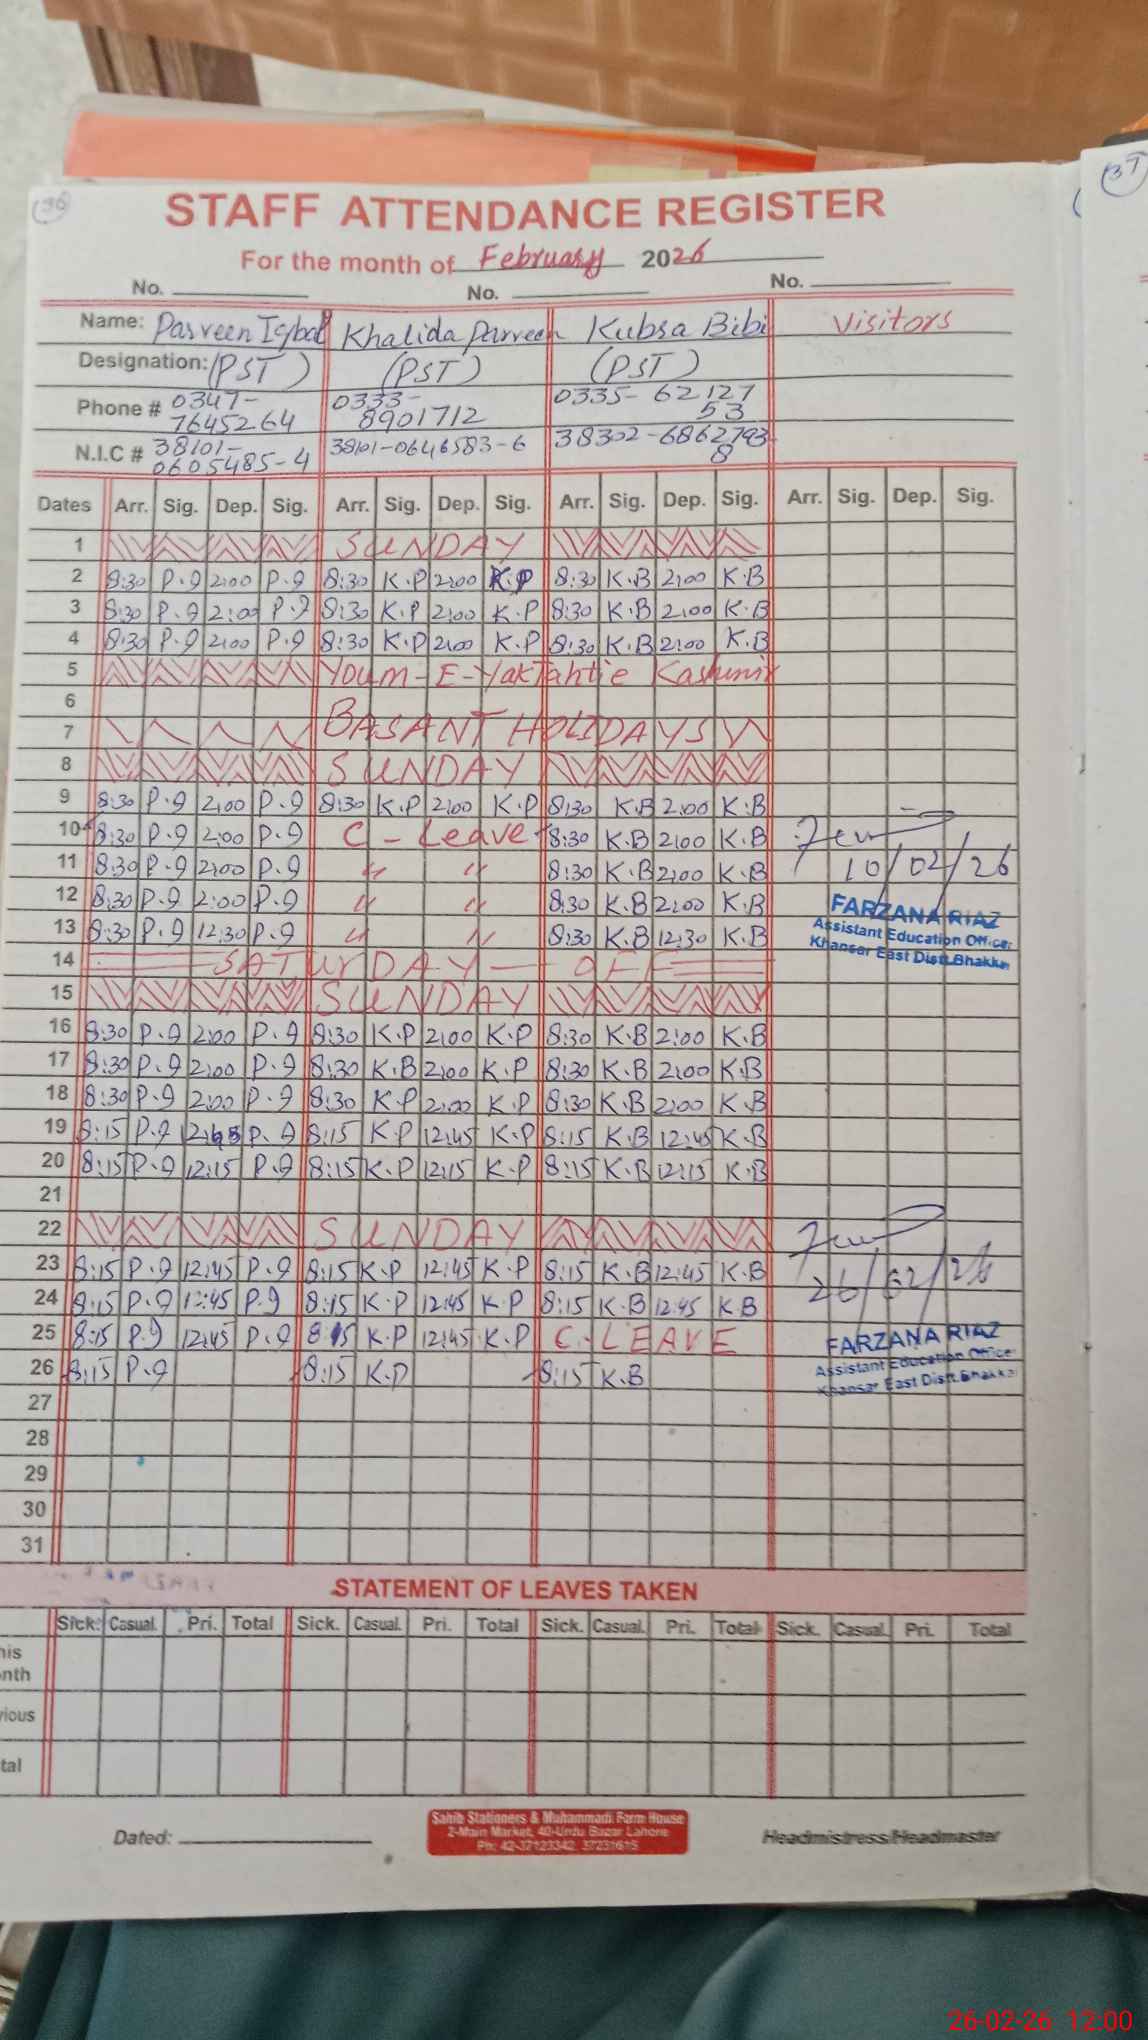 36
37
STAFF ATTENDANCE REGISTER
For the month of February 2026
No. No. No.
Name: Parveen Iqbal Khalida Parveen Kubra Bibi Visitors
Designation: (PST) (PST) (PST)
Phone # 0347-7645264 0333-8901712 0335-6212753
N.I.C # 38101-0605485-4 38101-0646583-6 38302-6862793-8
Dates Arr. Sig. Dep. Sig. Arr. Sig. Dep. Sig. Arr. Sig. Dep. Sig. Arr. Sig. Dep. Sig.
1 SUNDAY
2 8:30 P.I 2:00 P.I 8:30 K.P 2:00 K.P 8:30 K.B 2:00 K.B
3 8:30 P.I 2:00 P.I 8:30 K.P 2:00 K.P 8:30 K.B 2:00 K.B
4 8:30 P.I 2:00 P.I 8:30 K.P 2:00 K.P 8:30 K.B 2:00 K.B
5 Youm-E-YakJahtie Kashmir
6
7 BASANT HOLIDAYS
8 SUNDAY
9 8:30 P.I 2:00 P.I 8:30 K.P 2:00 K.P 8:30 K.B 2:00 K.B
10 8:30 P.I 2:00 P.I C-Leave 8:30 K.B 2:00 K.B
11 8:30 P.I 2:00 P.I " " 8:30 K.B 2:00 K.B 10/02/26
12 8:30 P.I 2:00 P.I " " 8:30 K.B 2:00 K.B FARZANA RIAZ
13 8:30 P.I 12:30 P.I " " 8:30 K.B 12:30 K.B Assistant Education Officer
Khansar East Distt.Bhakkar
14 SATURDAY - OFF
15 SUNDAY
16 8:30 P.I 2:00 P.I 8:30 K.P 2:00 K.P 8:30 K.B 2:00 K.B
17 8:30 P.I 2:00 P.I 8:30 K.B 2:00 K.P 8:30 K.B 2:00 K.B
18 8:30 P.I 2:00 P.I 8:30 K.P 2:00 K.P 8:30 K.B 2:00 K.B
19 8:15 P.I 12:45 P.I 8:15 K.P 12:45 K.P 8:15 K.B 12:45 K.B
20 8:15 P.I 12:15 P.I 8:15 K.P 12:15 K.P 8:15 K.B 12:15 K.B
21
22 SUNDAY
23 8:15 P.I 12:45 P.I 8:15 K.P 12:45 K.P 8:15 K.B 12:45 K.B 26/02/26
24 8:15 P.I 12:45 P.I 8:15 K.P 12:45 K.P 8:15 K.B 12:45 K.B
25 8:15 P.I 12:45 P.I 8:15 K.P 12:45 K.P C-LEAVE FARZANA RIAZ
26 8:15 P.I 8:15 K.P 8:15 K.B Assistant Education Officer
Khansar East Distt.Bhakkar
27
28
29
30
31
STATEMENT OF LEAVES TAKEN
Sick. Casual. Pri. Total Sick. Casual. Pri. Total Sick. Casual. Pri. Total Sick. Casual. Pri. Total
his
nth
vious
tal
Sahib Stationers & Muhammadi Farm House
2-Main Market, 40-Urdu Bazar Lahore
Ph: 42-37123342, 37231615
Dated: Headmistress/Headmaster
26-02-26 12:00